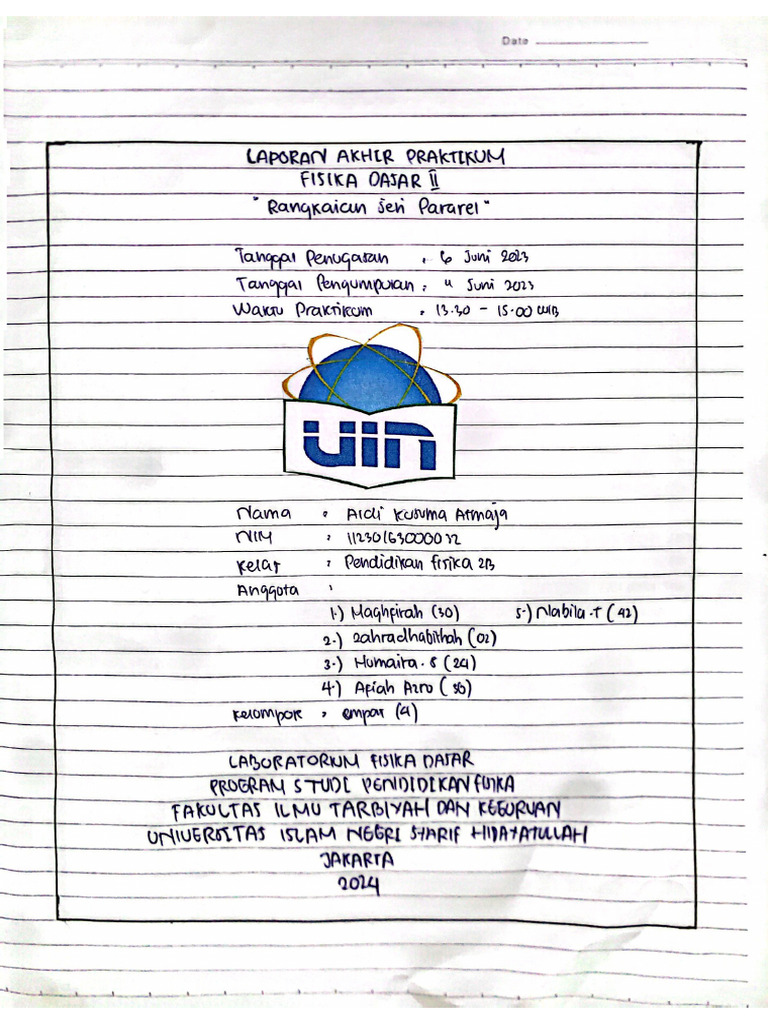 Date
LAPORAN AKHIR PRAKTIKUM
FISIKA DASAR II
"Rangkaian Seri Pararel"
Tanggal Penugasan : 6 Juni 2023
Tanggal Pengumpulan : 4 Juni 2023
Waktu Praktikum : 13.30 - 15.00 WIB
UIN
Nama : Aldi Kusuma Atmaja
NIM : 11230163000032
Kelas : Pendidikan fisika 2B
Anggota :
1.) Maghfirah (30) 5.) Nabila.T (42)
2.) Zahradhabithah (02)
3.) Humaira.S (24)
4.) Afiah Azro (36)
Kelompok : empat (4)
LABORATORIUM FISIKA DASAR
PROGRAM STUDI PENDIDIKAN FISIKA
FAKULTAS ILMU TARBIYAH DAN KEGURUAN
UNIVERSITAS ISLAM NEGRI SYARIF HIDAYATULLAH
JAKARTA
2024